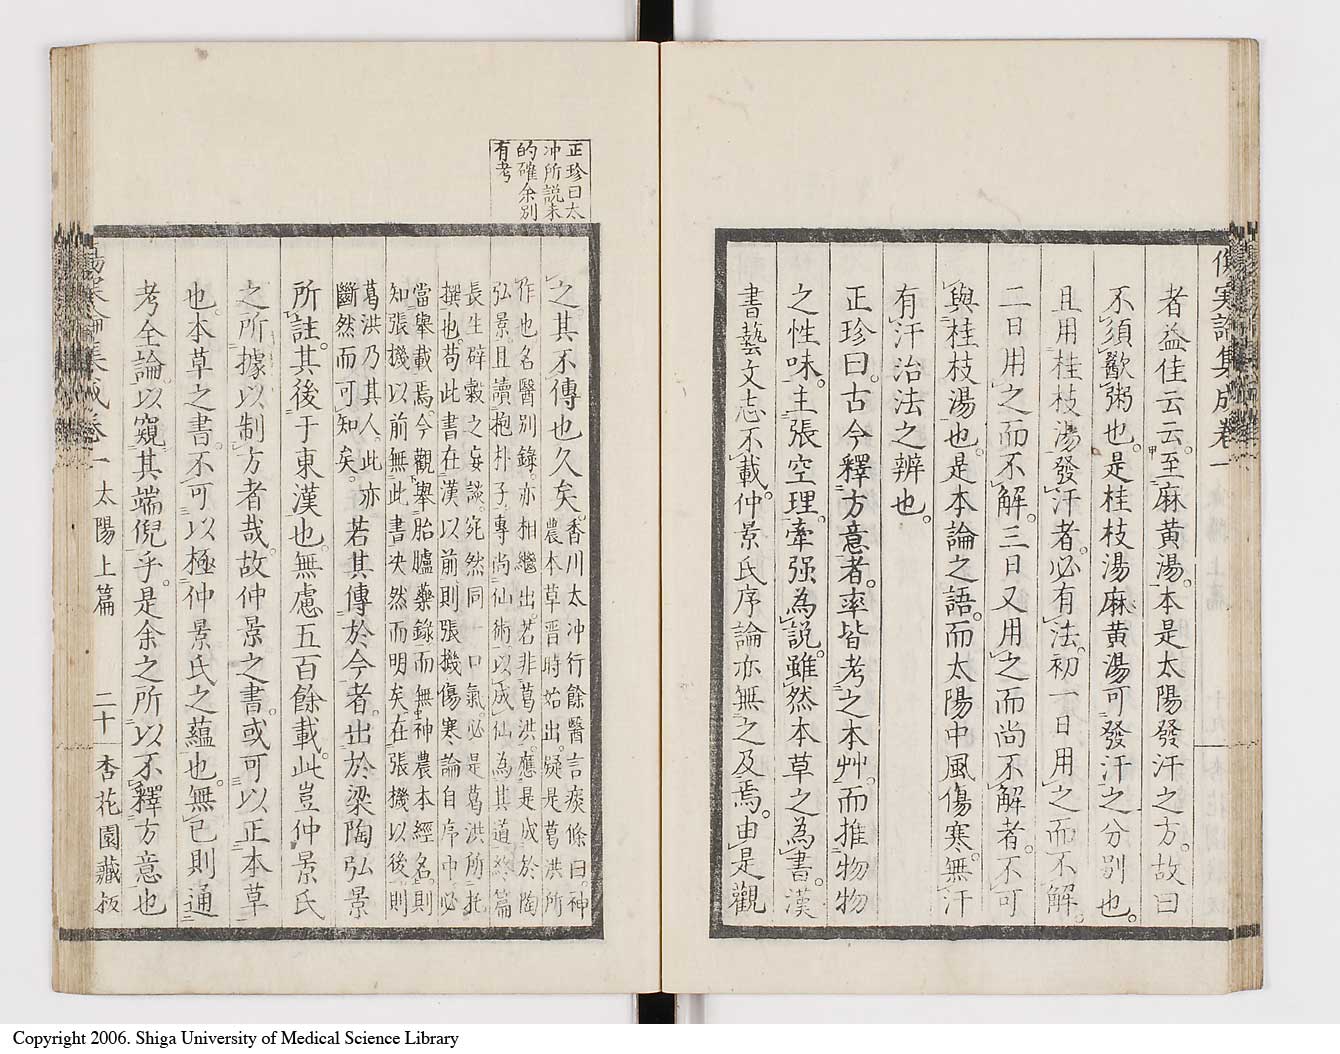 傷寒論集成卷一
者益佳云云。至麻黄湯。本是太陽發汗之方。故曰
不須歠粥也。是桂枝湯麻黄湯可發汗之分別也。
且用桂枝湯發汗者。必有法。初一日用之而不解。
二日用之而不解。三日又用之而尚不解者。不可
與桂枝湯也。是本論之語。而太陽中風傷寒。無汗
有汗治法之辨也。
正珍曰。古今釋方意者。率皆考之本艸。而推物物
之性味。主張空理。牽强為説。雖然本草之為書。漢
書藝文志不載。仲景氏序論亦無之及焉。由是觀
正珍曰太
冲所説未
的確余別
有考
之。其不傳也久矣。
香川太冲行餘醫言痰條曰。神
農本草晋時始出。疑是葛洪所
作也名醫別錄。亦相繼出。若非葛洪。應是成於陶
弘景。且讀抱朴子。專尚仙術。以成仙為其道終篇
長生辟穀之妄談。宛然同一口氣。必是葛洪所托
撰也。苟此書在漢以前。則張機傷寒論自序中。必
當舉載焉。今觀舉胎臚藥錄而無神農本經名則
知張機以前無此書决然而明矣。在張機以後。則
葛洪乃其人。此亦
斷然而可知矣。
若其傳於今者。出於梁陶弘景
所註。其後于東漢也。無慮五百餘載。此豈仲景氏
之所據以制方者哉。故仲景之書。或可以正本草
也。本草之書。不可以極仲景氏之蘊也。無已則通
考全論。以窺其端倪乎。是余之所以不釋方意也
卷一 太陽上篇 二十 杏花園藏板
Copyright 2006. Shiga University of Medical Science Library